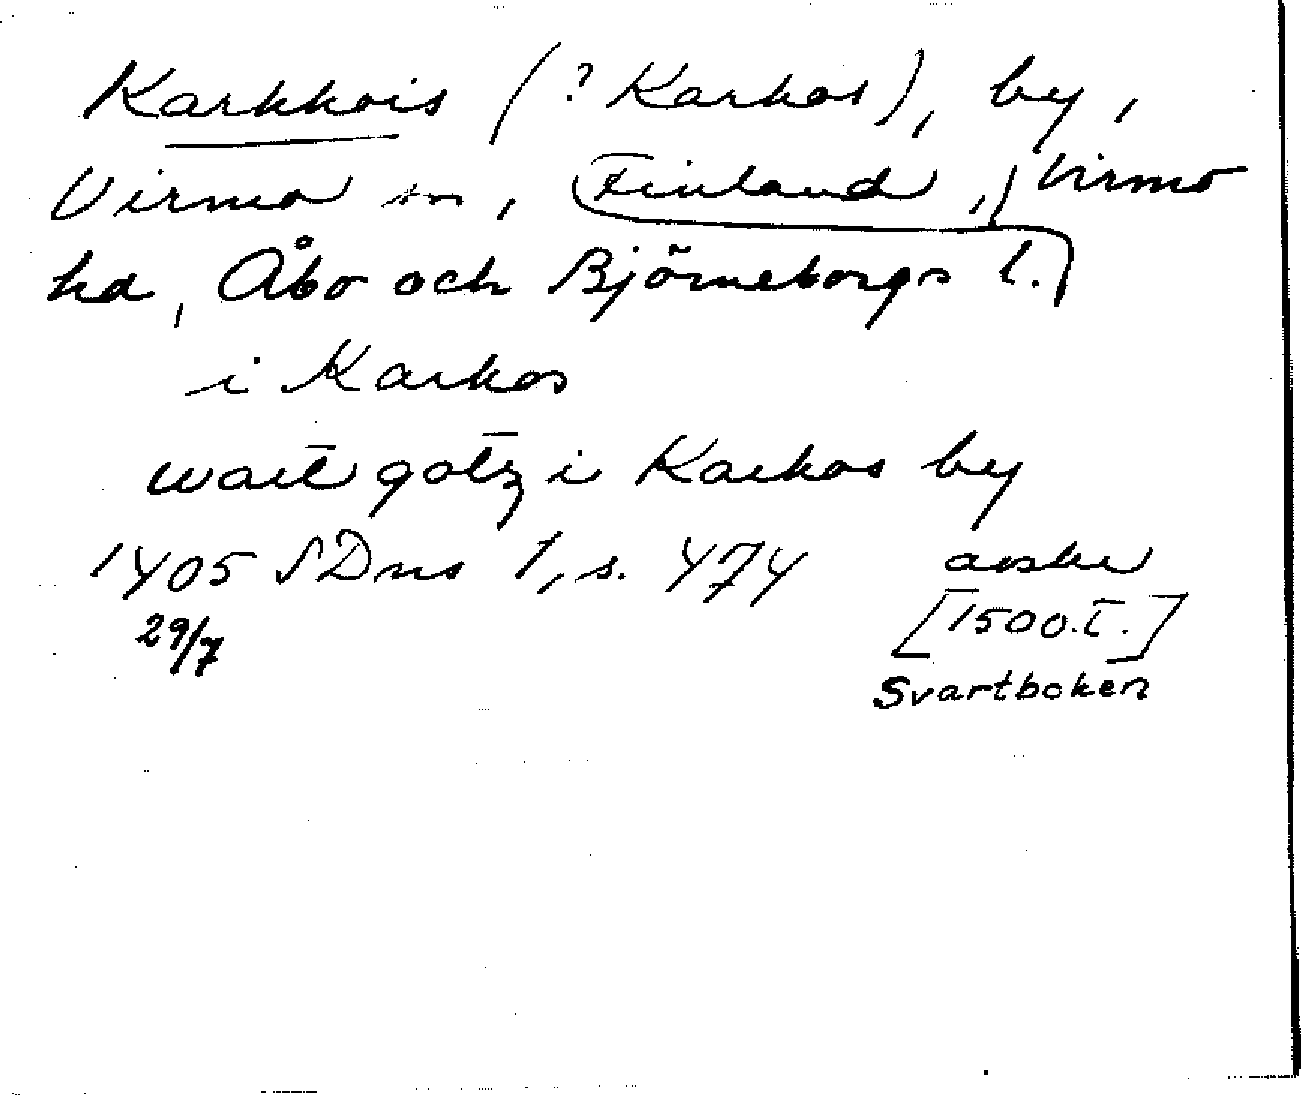 Karkkois (? Karkos), by,
Virmo sn, Finland, Virmo
hd, Åbo och Björneborgs l.
i Karkos
wart gotz i Karkos by
1405 SDns 1, s. 474 avskr
29/7 [1500.t.]
Svartboken